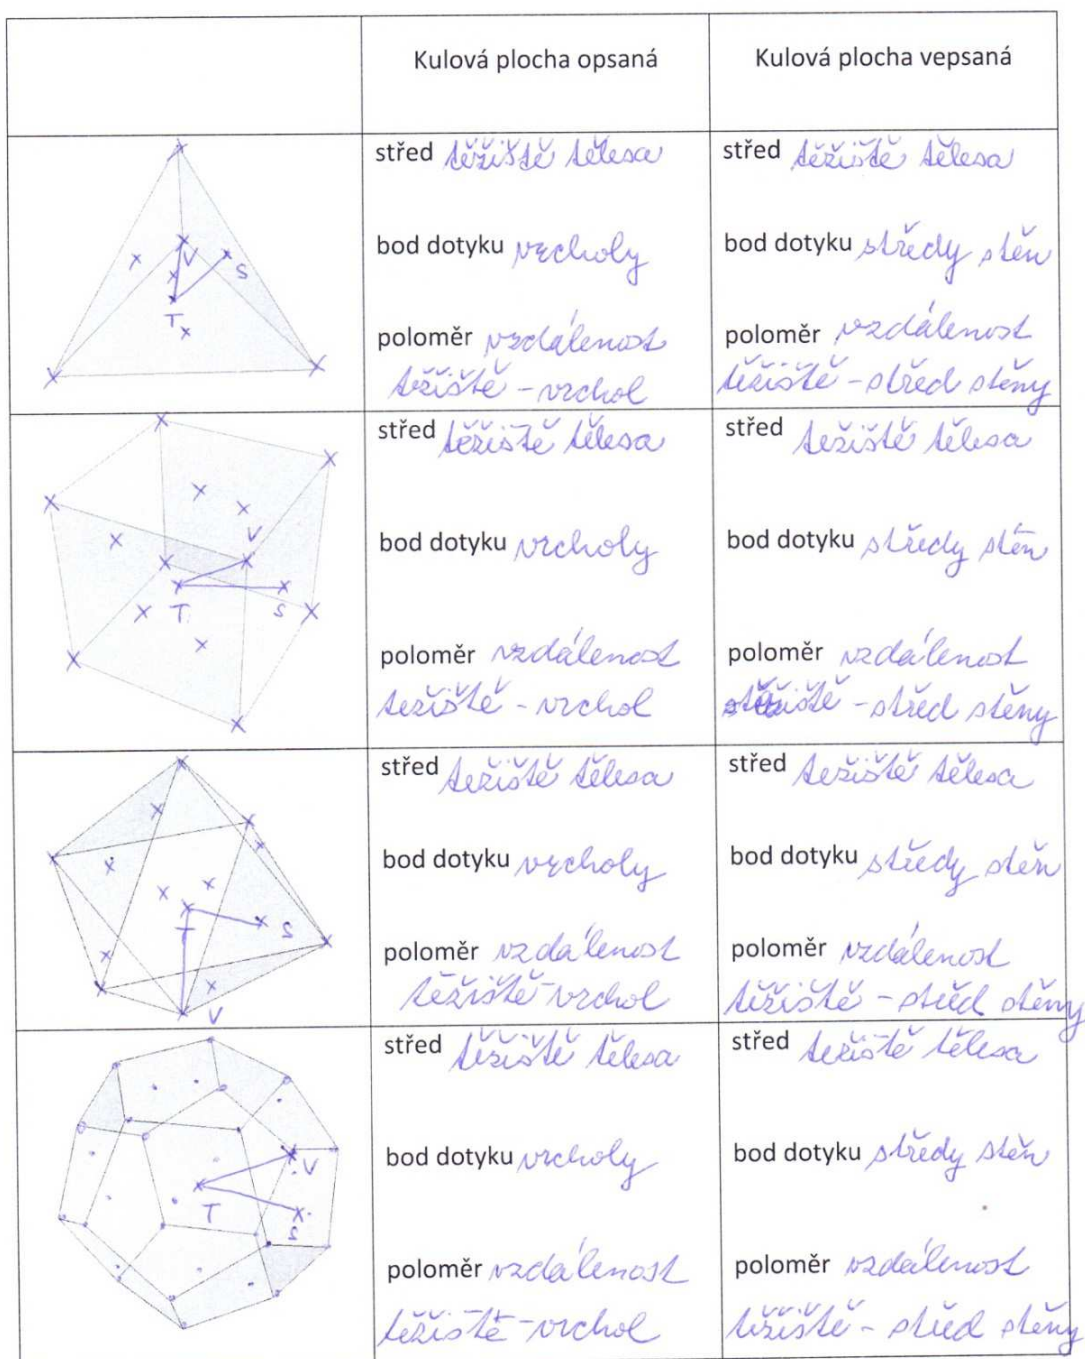 Kulová plocha opsaná
Kulová plocha vepsaná
V
S
T
střed těžiště tělesa
bod dotyku vrcholy
poloměr vzdálenost
těžiště - vrchol
střed těžiště tělesa
bod dotyku středy stěn
poloměr vzdálenost
těžiště - střed stěny
V
T
S
střed těžiště tělesa
bod dotyku vrcholy
poloměr vzdálenost
těžiště - vrchol
střed těžiště tělesa
bod dotyku středy stěn
poloměr vzdálenost
těžiště - střed stěny
T
S
V
střed těžiště tělesa
bod dotyku vrcholy
poloměr vzdálenost
těžiště - vrchol
střed těžiště tělesa
bod dotyku středy stěn
poloměr vzdálenost
těžiště - střed stěny
V
T
S
střed těžiště tělesa
bod dotyku vrcholy
poloměr vzdálenost
těžiště - vrchol
střed těžiště tělesa
bod dotyku středy stěn
poloměr vzdálenost
těžiště - střed stěny